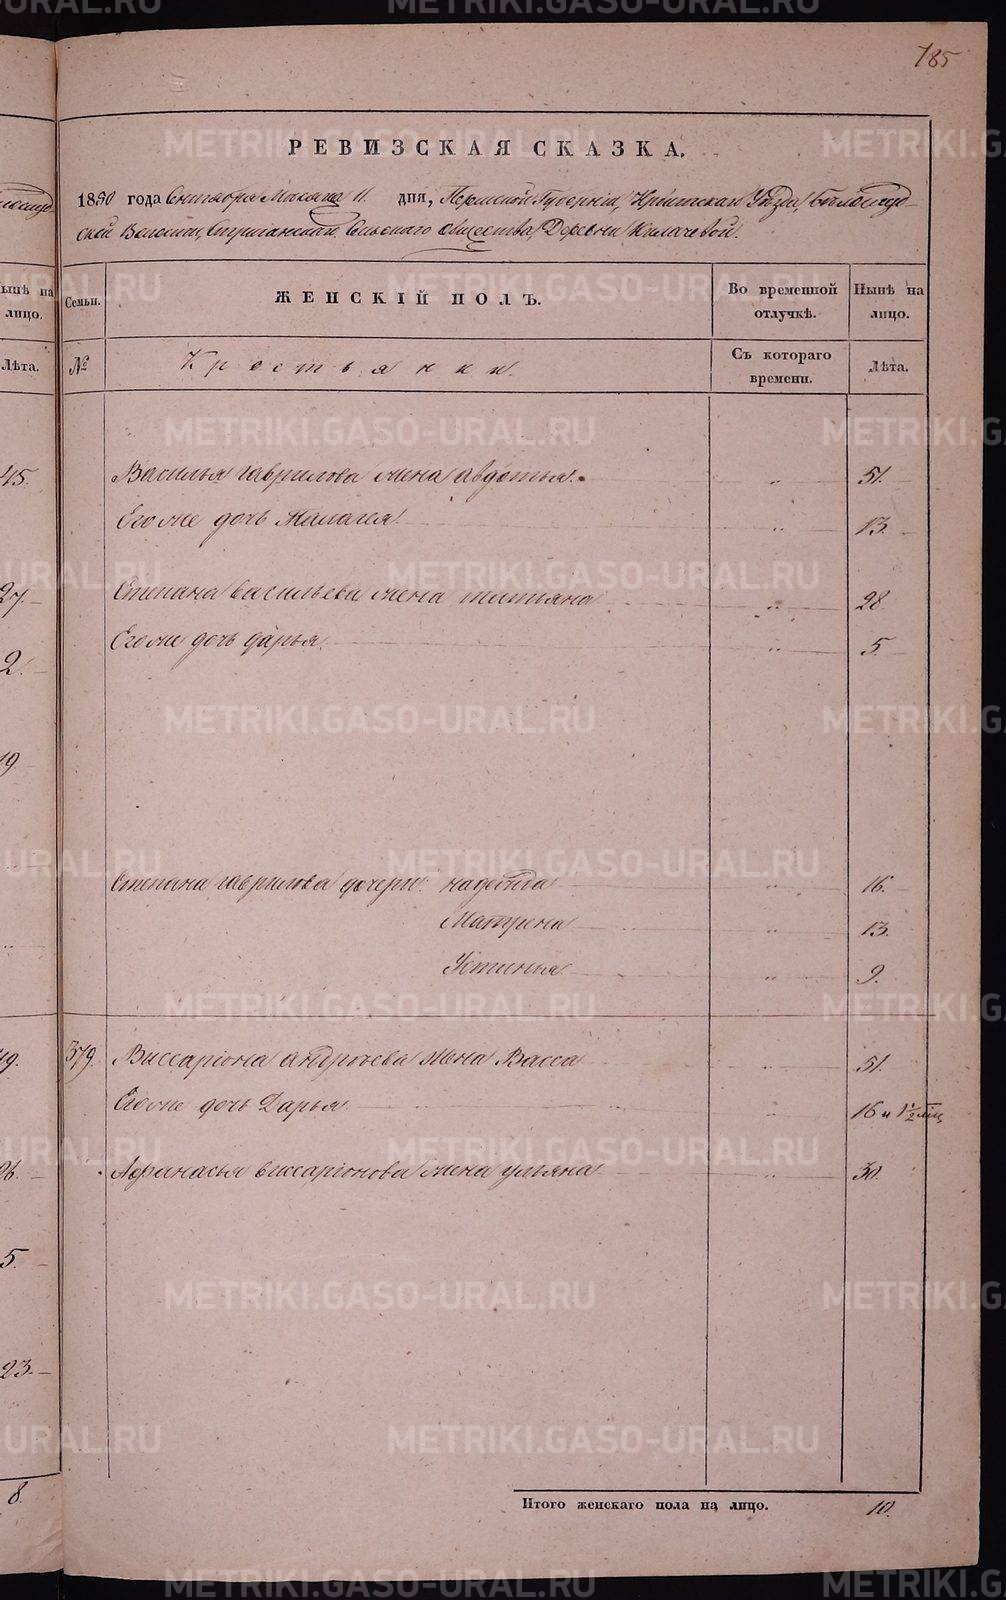 785
РЕВИЗСКАЯ СКАЗКА.
1850 года Сентября Месяца 11 дня, Пермской Губернiи, Ирбитскаго Уѣзда, Бѣлослуд-
ской Волости, Стриганскаго Сельскаго Общества, Деревни Килачевой.
ынѣ на лицо.
Семьи.
ЖЕНСКІЙ ПОЛЪ.
Во временной отлучкѣ.
Нынѣ на лицо.
Лѣта.
№
Крестьянки.
Съ котораго времени.
Лѣта.
45. Василья Гаврилова жена Авдотья. „ 51.
Его же дочь Палагея. „ 13.
27. Степана Васильева жена Татьяна „ 28.
Его же дочь Дарья. „ 5.
2.
19
Степана Гаврилова дочери: Надежда „ 16.
Матрена „ 13.
Устинья „ 9.
49. 379. Виссарiона Андрѣева жена Васса „ 51.
Его же дочь Дарья „ 16 и 1½ мѣ
26. Афанасья Виссарiонова жена Ульяна „ 30.
5.
23.
8. Итого женскаго пола на лицо. 10.
METRIKI.GASO-URAL.RU